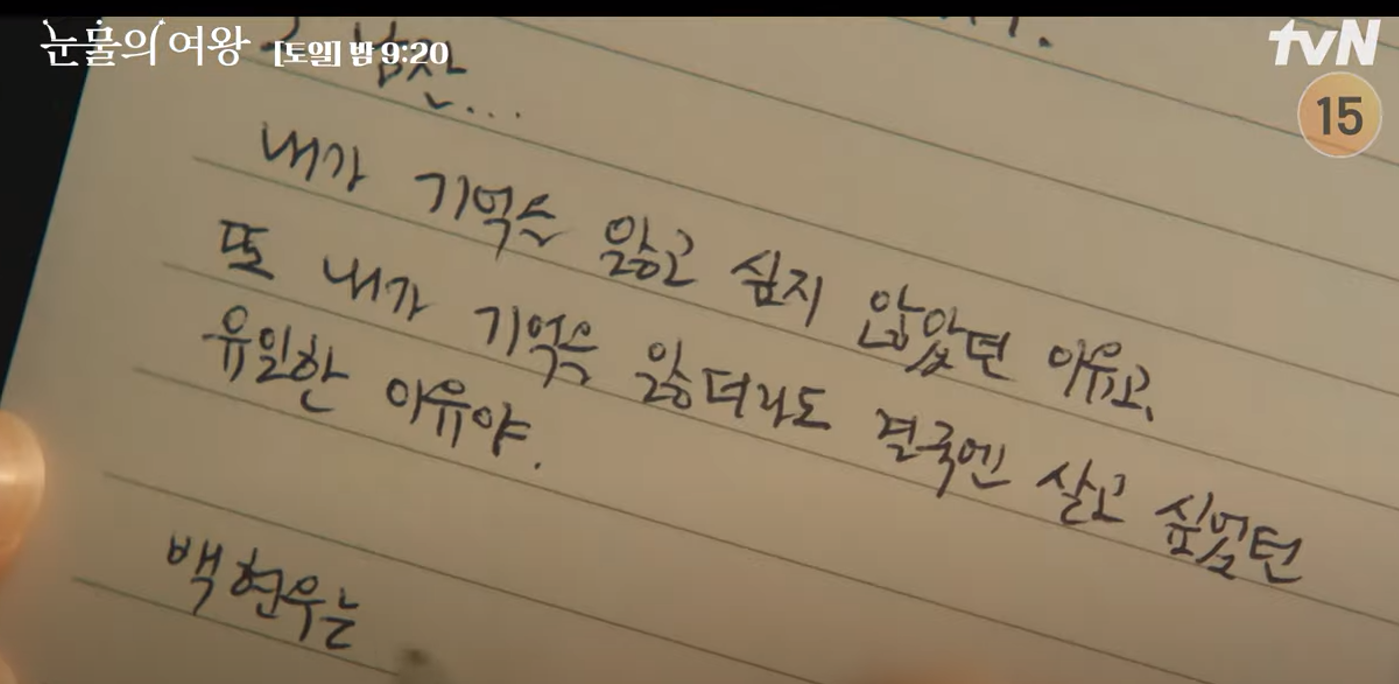 눈물의 여왕 [토일] 밤 9:20
tvN
15
남잔...
내가 기억을 잃고 싶지 않았던 이유고,
또 내가 기억을 잃더라도 결국엔 살고 싶었던
유일한 이유야.
백현우는